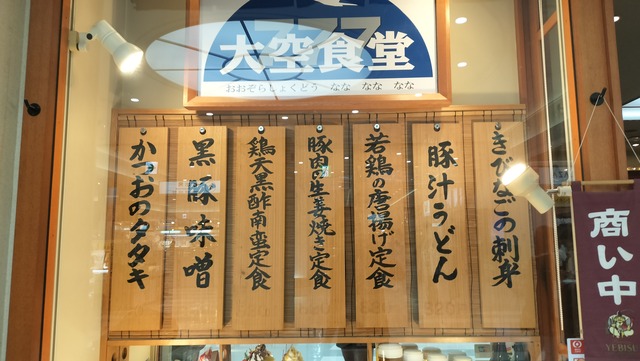 777
大空食堂
おおぞらしょくどう なな なな なな
きびなごの刺身
豚汁うどん
若鶏の唐揚げ定食
豚肉の生姜焼き定食
鶏天黒酢南蛮定食
黒豚味噌
かつおのタタキ
商い中
YEBISU